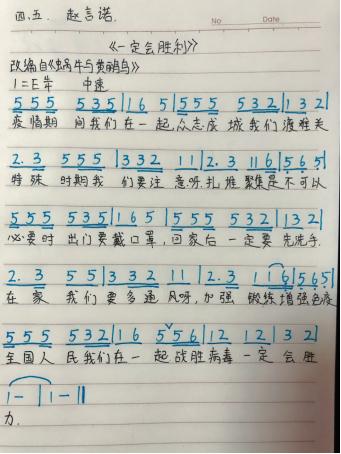 No
Date
四.五. 赵言诺.
《一定会胜利》
改编自《蜗牛与黄鹂鸟》
1=E 中速
5 5 5 5 3 5|1 6 5|5 5 5 5 3 2|1 3 2|
疫情期 间我们在一起,众志成 城我们渡难关
2. 3 5 5 5|3 3 2 1 1|2. 3 1 1 6|5 6 5|
特殊 时期我 们要注意呀,扎堆聚集是不可以
5 5 5 5 3 5|1 6 5|5 5 5 5 3 2|1 3 2|
必要时 出门要戴口罩,回家后 一定要 先洗手.
2. 3 5 5|3 3 2 1 1|2. 3 1 1 6|5 6 5|
在家 我们要多通风呀,加强 锻炼增强免疫
5 5 5 5 3 2|1 6 5 5 6|1 2 1 2|3 2|
全国人 民我们在一起战胜病毒一定会胜
1 -|1 -‖
力.